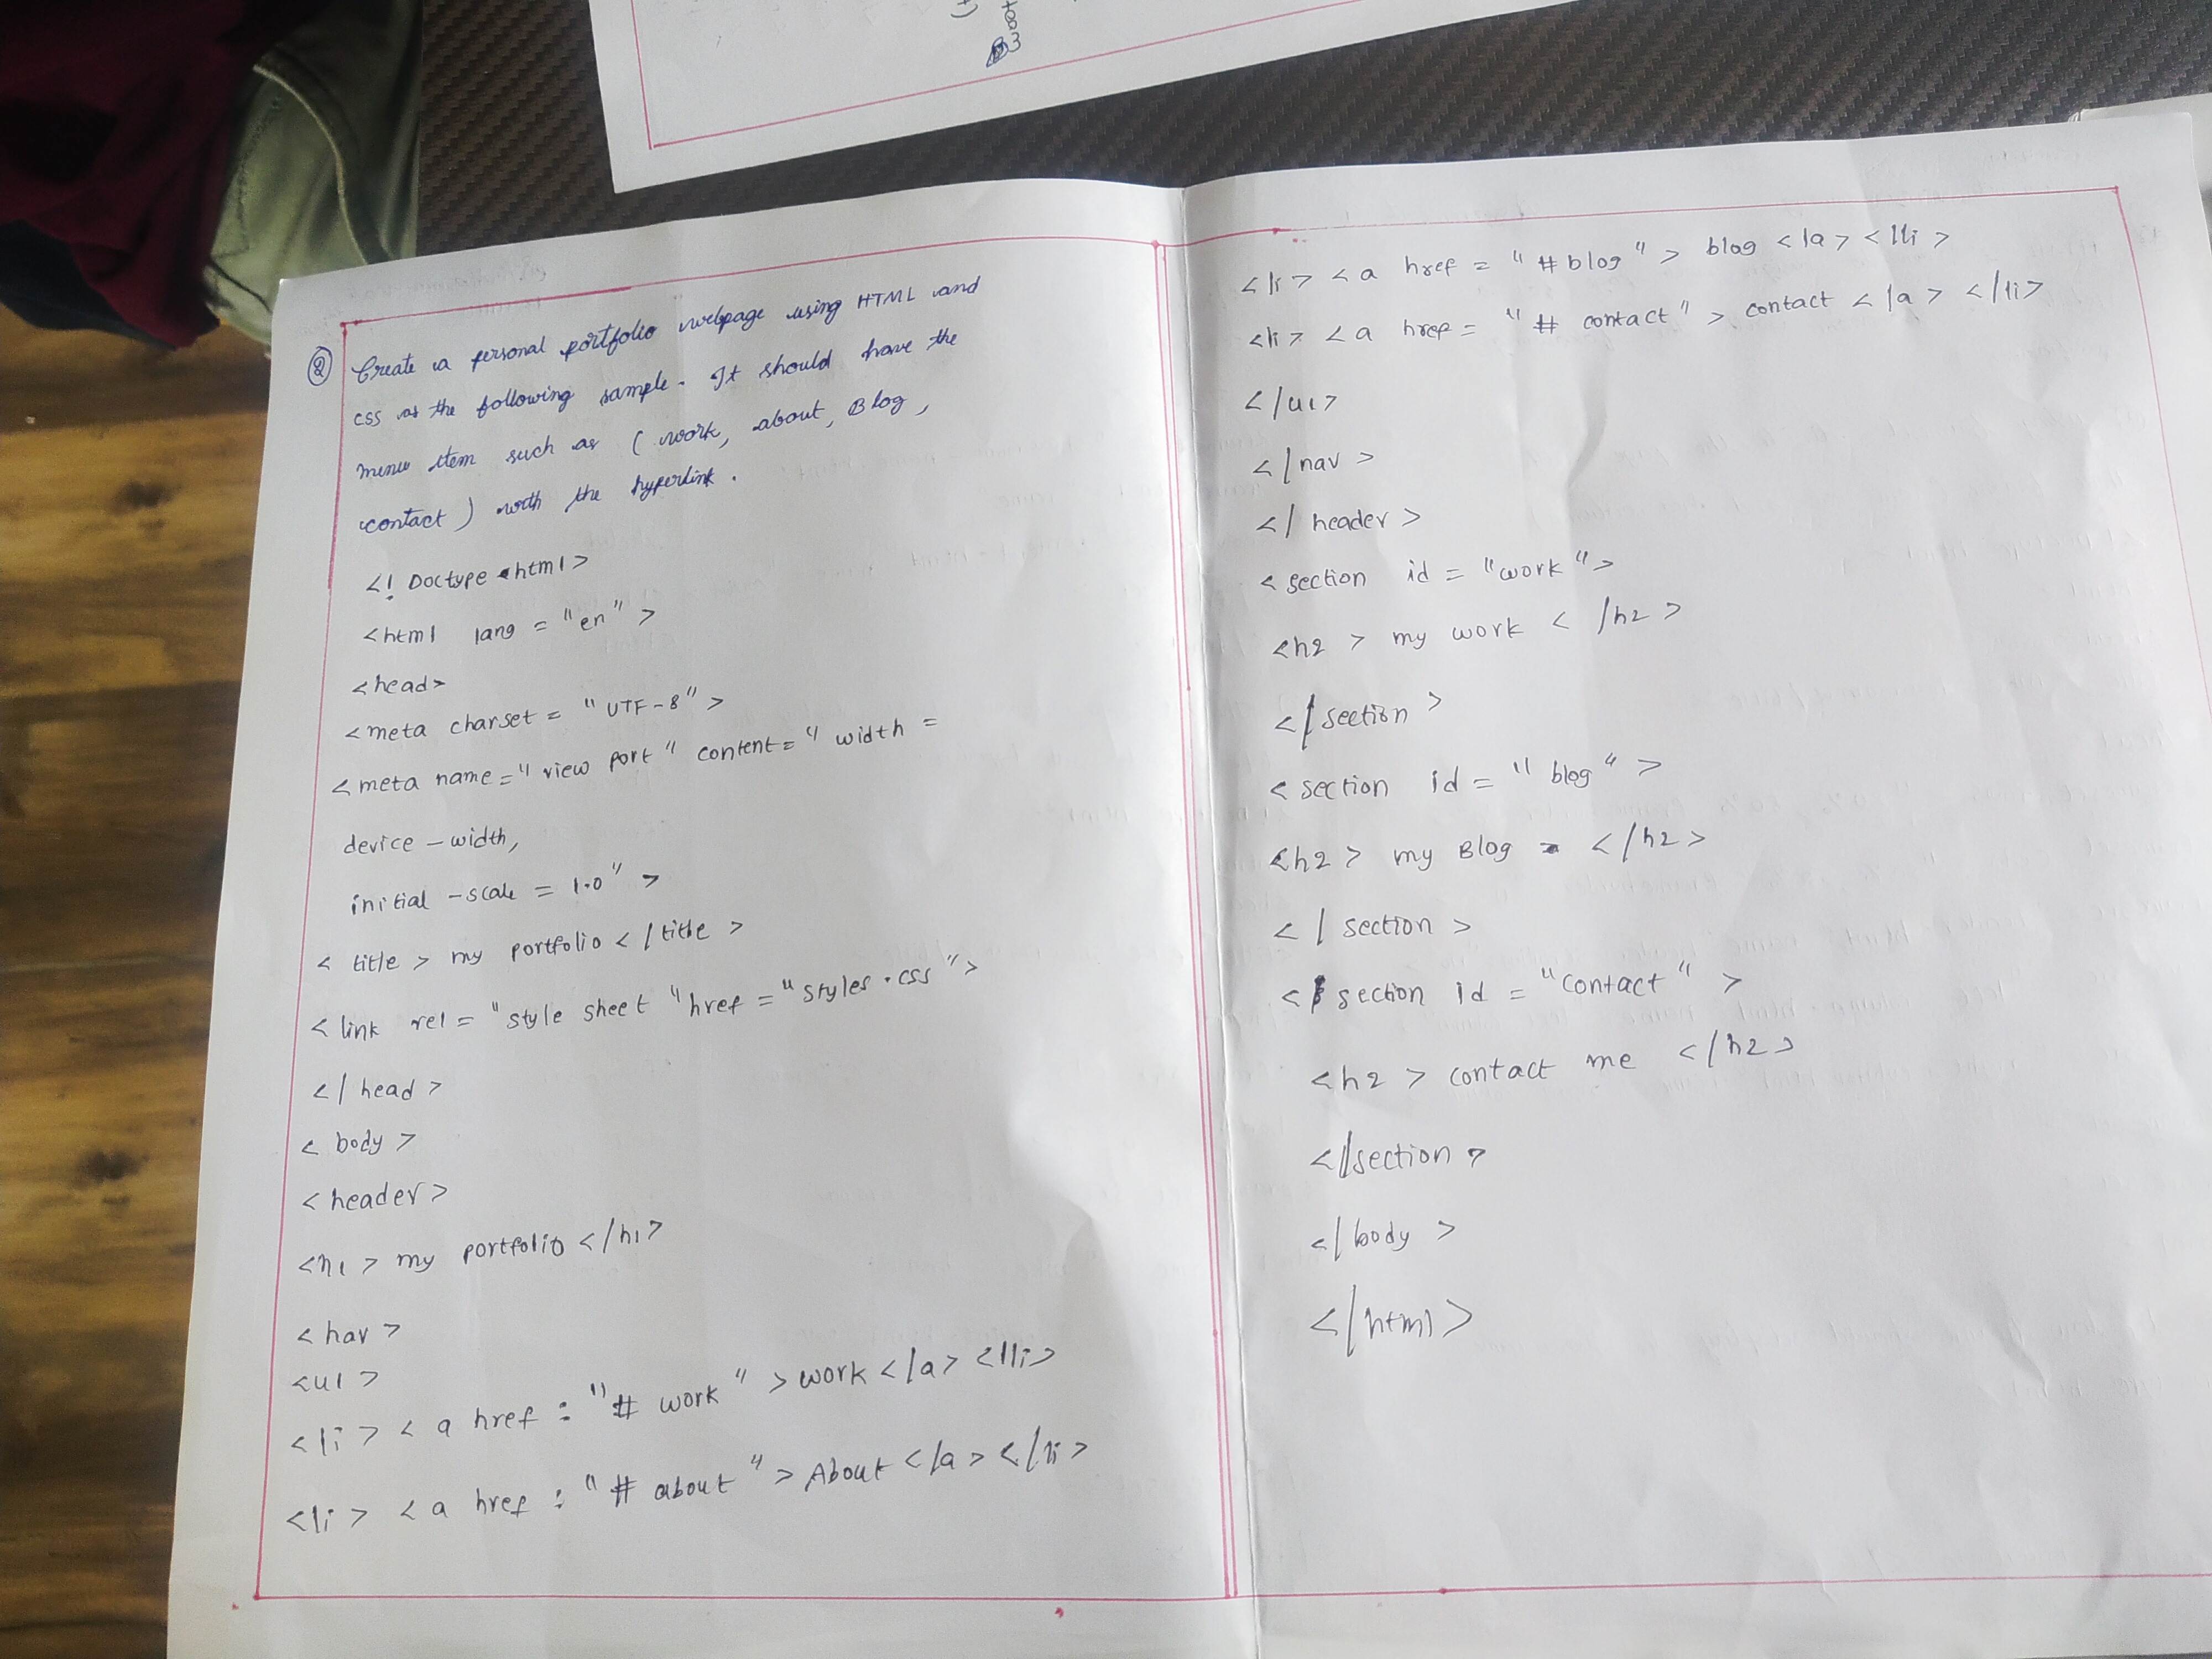 ② Create a personal portfolio webpage using HTML and
css as the following sample. It should have the
menu item such as ( work, about, Blog,
contact ) with the hyperlink.
<! Doctype html>
<html lang = "en" >
<head>
<meta charset = "UTF-8" >
<meta name = "view port" content = "width =
device - width,
initial - scale = 1.0" >
< title > my portfolio < / title >
< link rel = "style sheet" href = "styles.css" >
</ head >
< body >
< header >
<h1 > my portfolio </h1>
< hav >
<ul >
<li > < a href : "# work" > work </a> </li>
<li > < a href : "# about" > About </a> </li>
<li > < a href = "#blog" > blog </a> </li >
<li > < a href = "# contact" > contact </a > </li>
</ul>
</nav >
</ header >
< section id = "work" >
<h2 > my work < /h2 >
</ section >
< section id = "blog" >
<h2 > my Blog </h2 >
</ section >
< section id = "contact" >
<h2 > contact me </h2>
</section >
</ body >
</html>